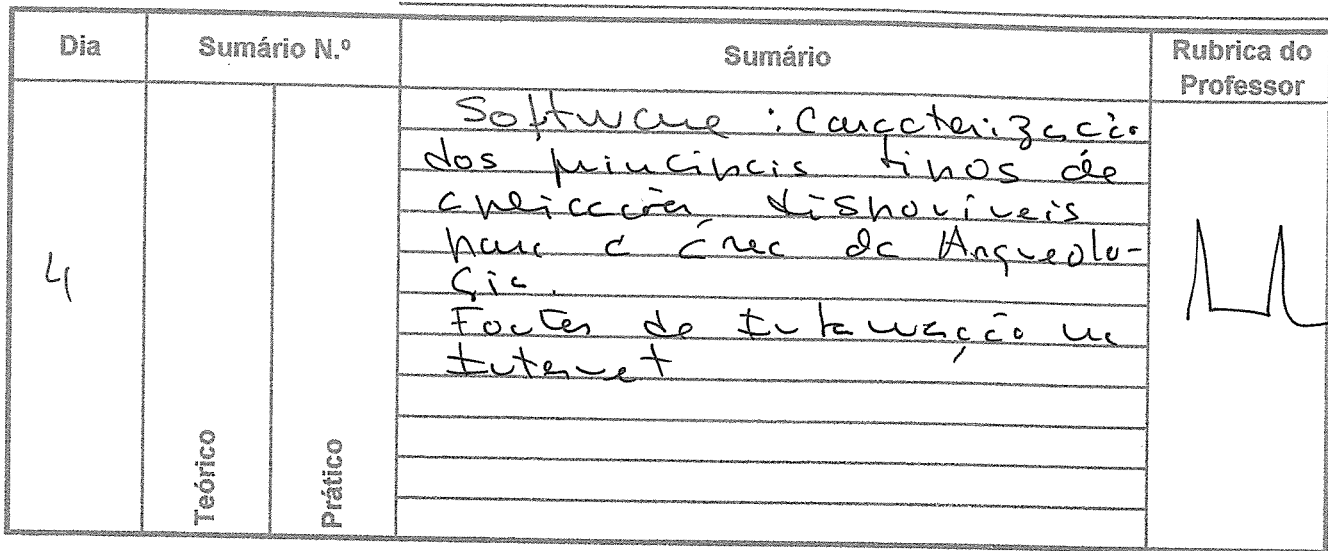 Dia Sumário N.º Sumário Rubrica do Professor
Teórico
Prático
4
Software : Caracterização
dos principais tipos de
aplicações disponíveis
para a área da Arqueolo-
gia.
Fontes de Informação na
Internet